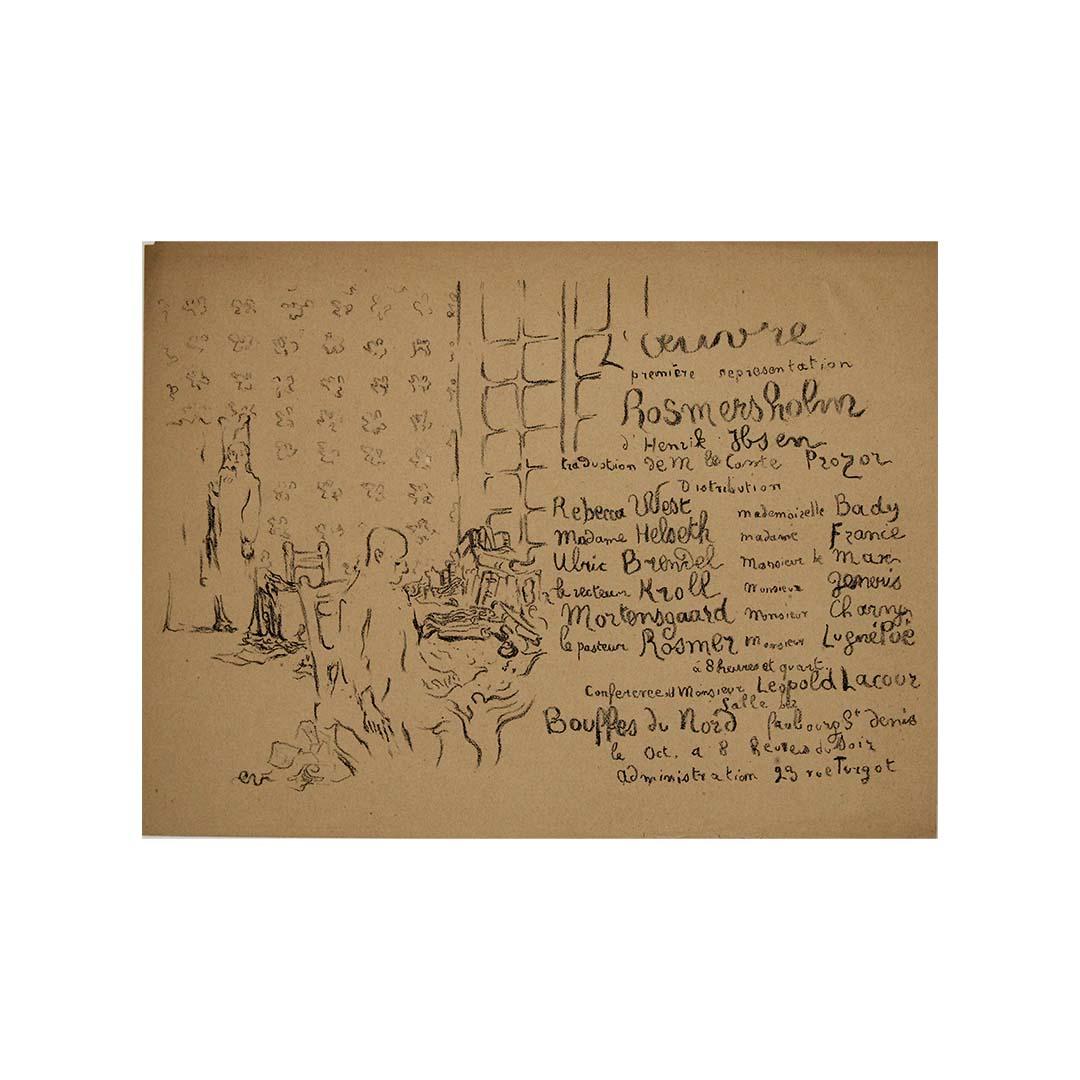 L'œuvre
première representation
Rosmersholm
d'Henrik Ibsen
traduction de M le Comte Prozor
Distribution
Rebecca West mademoiselle Bady
Madame Helseth madame France
Ulric Brendel Monsieur de Max
le recteur Kroll Monsieur
Mortensgaard Monsieur Charny
le pasteur Rosmer Monsieur Lugné Poë
à 8 heures et quart.
Conference d Monsieur Leopold Lacour
Salle des
Bouffes du Nord faubourg St denis
le Oct. a 8 heures du Soir
administration 23 rue Turgot
ev